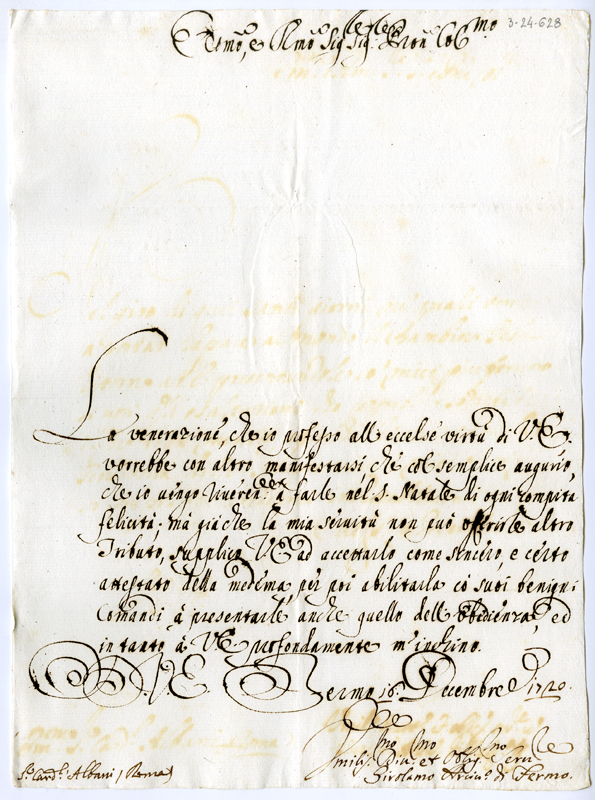 3-24-628
Em̃o, e Rmõ Sig.re Sig.re Pron Col.mo
La venerazione, che io professo all eccelse virtù di V.E.
vorrebbe con altro manifestarsi che col semplice augurio,
che io vengo riveren.te à farle nel S. Natale di ogni compita
felicità; mà già che la mia servitù non può offerirle altro
Tributo, supplico V.E. ad accettarlo come sincero, e certo
attestato della medema, per poi abilitarla co suoi benigni
Comandi à presentarle anche quello dell Obedienza, ed
in tanto à V.E. profondamente m'inchino.
D.V.E. Fermo 16 Decembre 1720.
Umiliss.mo Div.mo et Oblig.mo Seru.re
Girolamo Arciu.o di Fermo.
S.r Card.l Albani / Roma